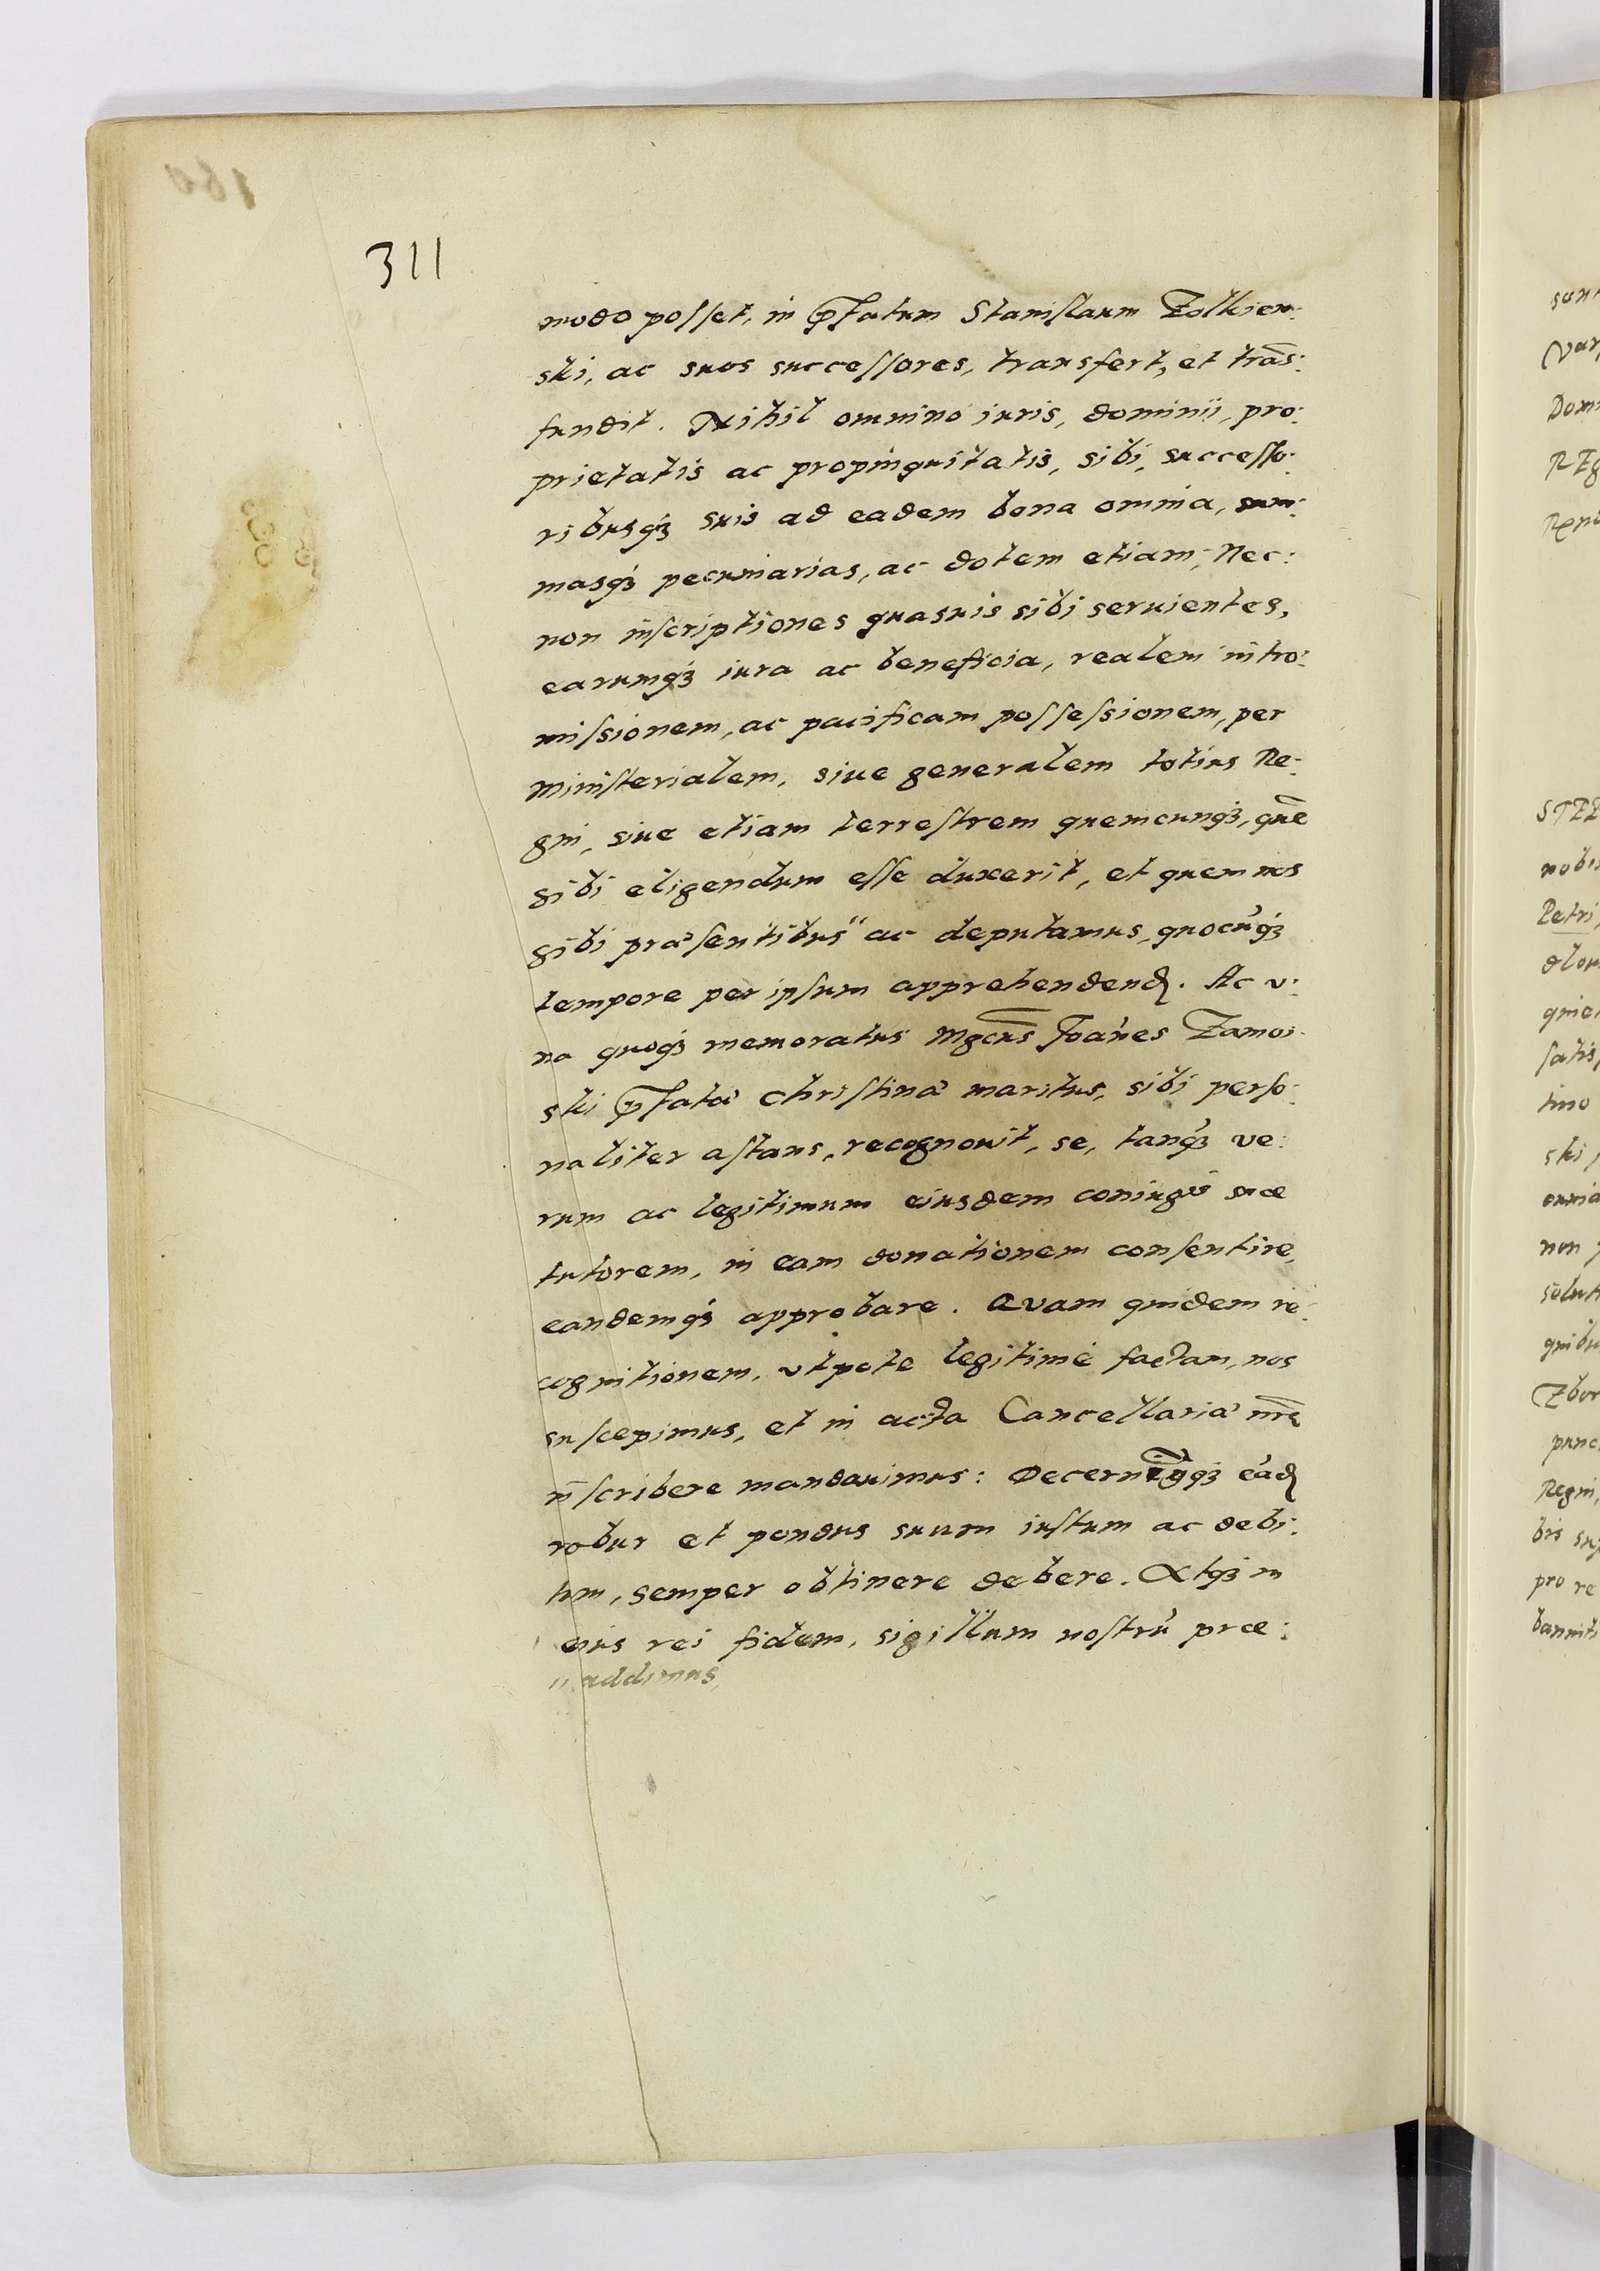 311
modo posset, in p̃fatum Stanislaum Zolkiew:
ski, ac suos successores, transfert, et trãs:
fundit. Nihil omnino iuris, dominii, pro:
prietatis ac propinquitatis, sibi, successo:
ribusq3 suis ad eadem bona omnia, sum:
masq3 pecuniarias, ac dotem etiam, Nec:
non inscriptiones quasuis sibi seruientes,
earumq3 iura ac beneficia, realem intro:
missionem, ac pacificam possessionem, per
ministerialem, siue generalem totius Re:
gni, siue etiam terrestrem quemcunq3, quẽ
sibi eligendum esse duxerit, et quem nos
sibi præsentibus " ac deputamus, quocũq3
tempore per ipsum apprehendend. Ac v:
na quoq3 memoratus Mgcus Joañes Zamoi:
ski p̃fatæ Christinæ maritus, sibi perso:
naliter astans, recognouit, se, tanq3 ve:
rum ac legitimum eiusdem coniugis suæ
tutorem, in eam donationem consentire,
eandemq3 approbare. Quam quidem re:
cognitionem, vtpote legitimè factam, nos
suscepimus, et in acta Cancellariæ nrẽ
inscribere mandauimus: Decern q3 eãd
robur et pondus suum iustum ac debi:
tum, semper obtinere debere. Atq3 in
eius rei fidem, sigillum nostrũ præ:
" addimus,
180